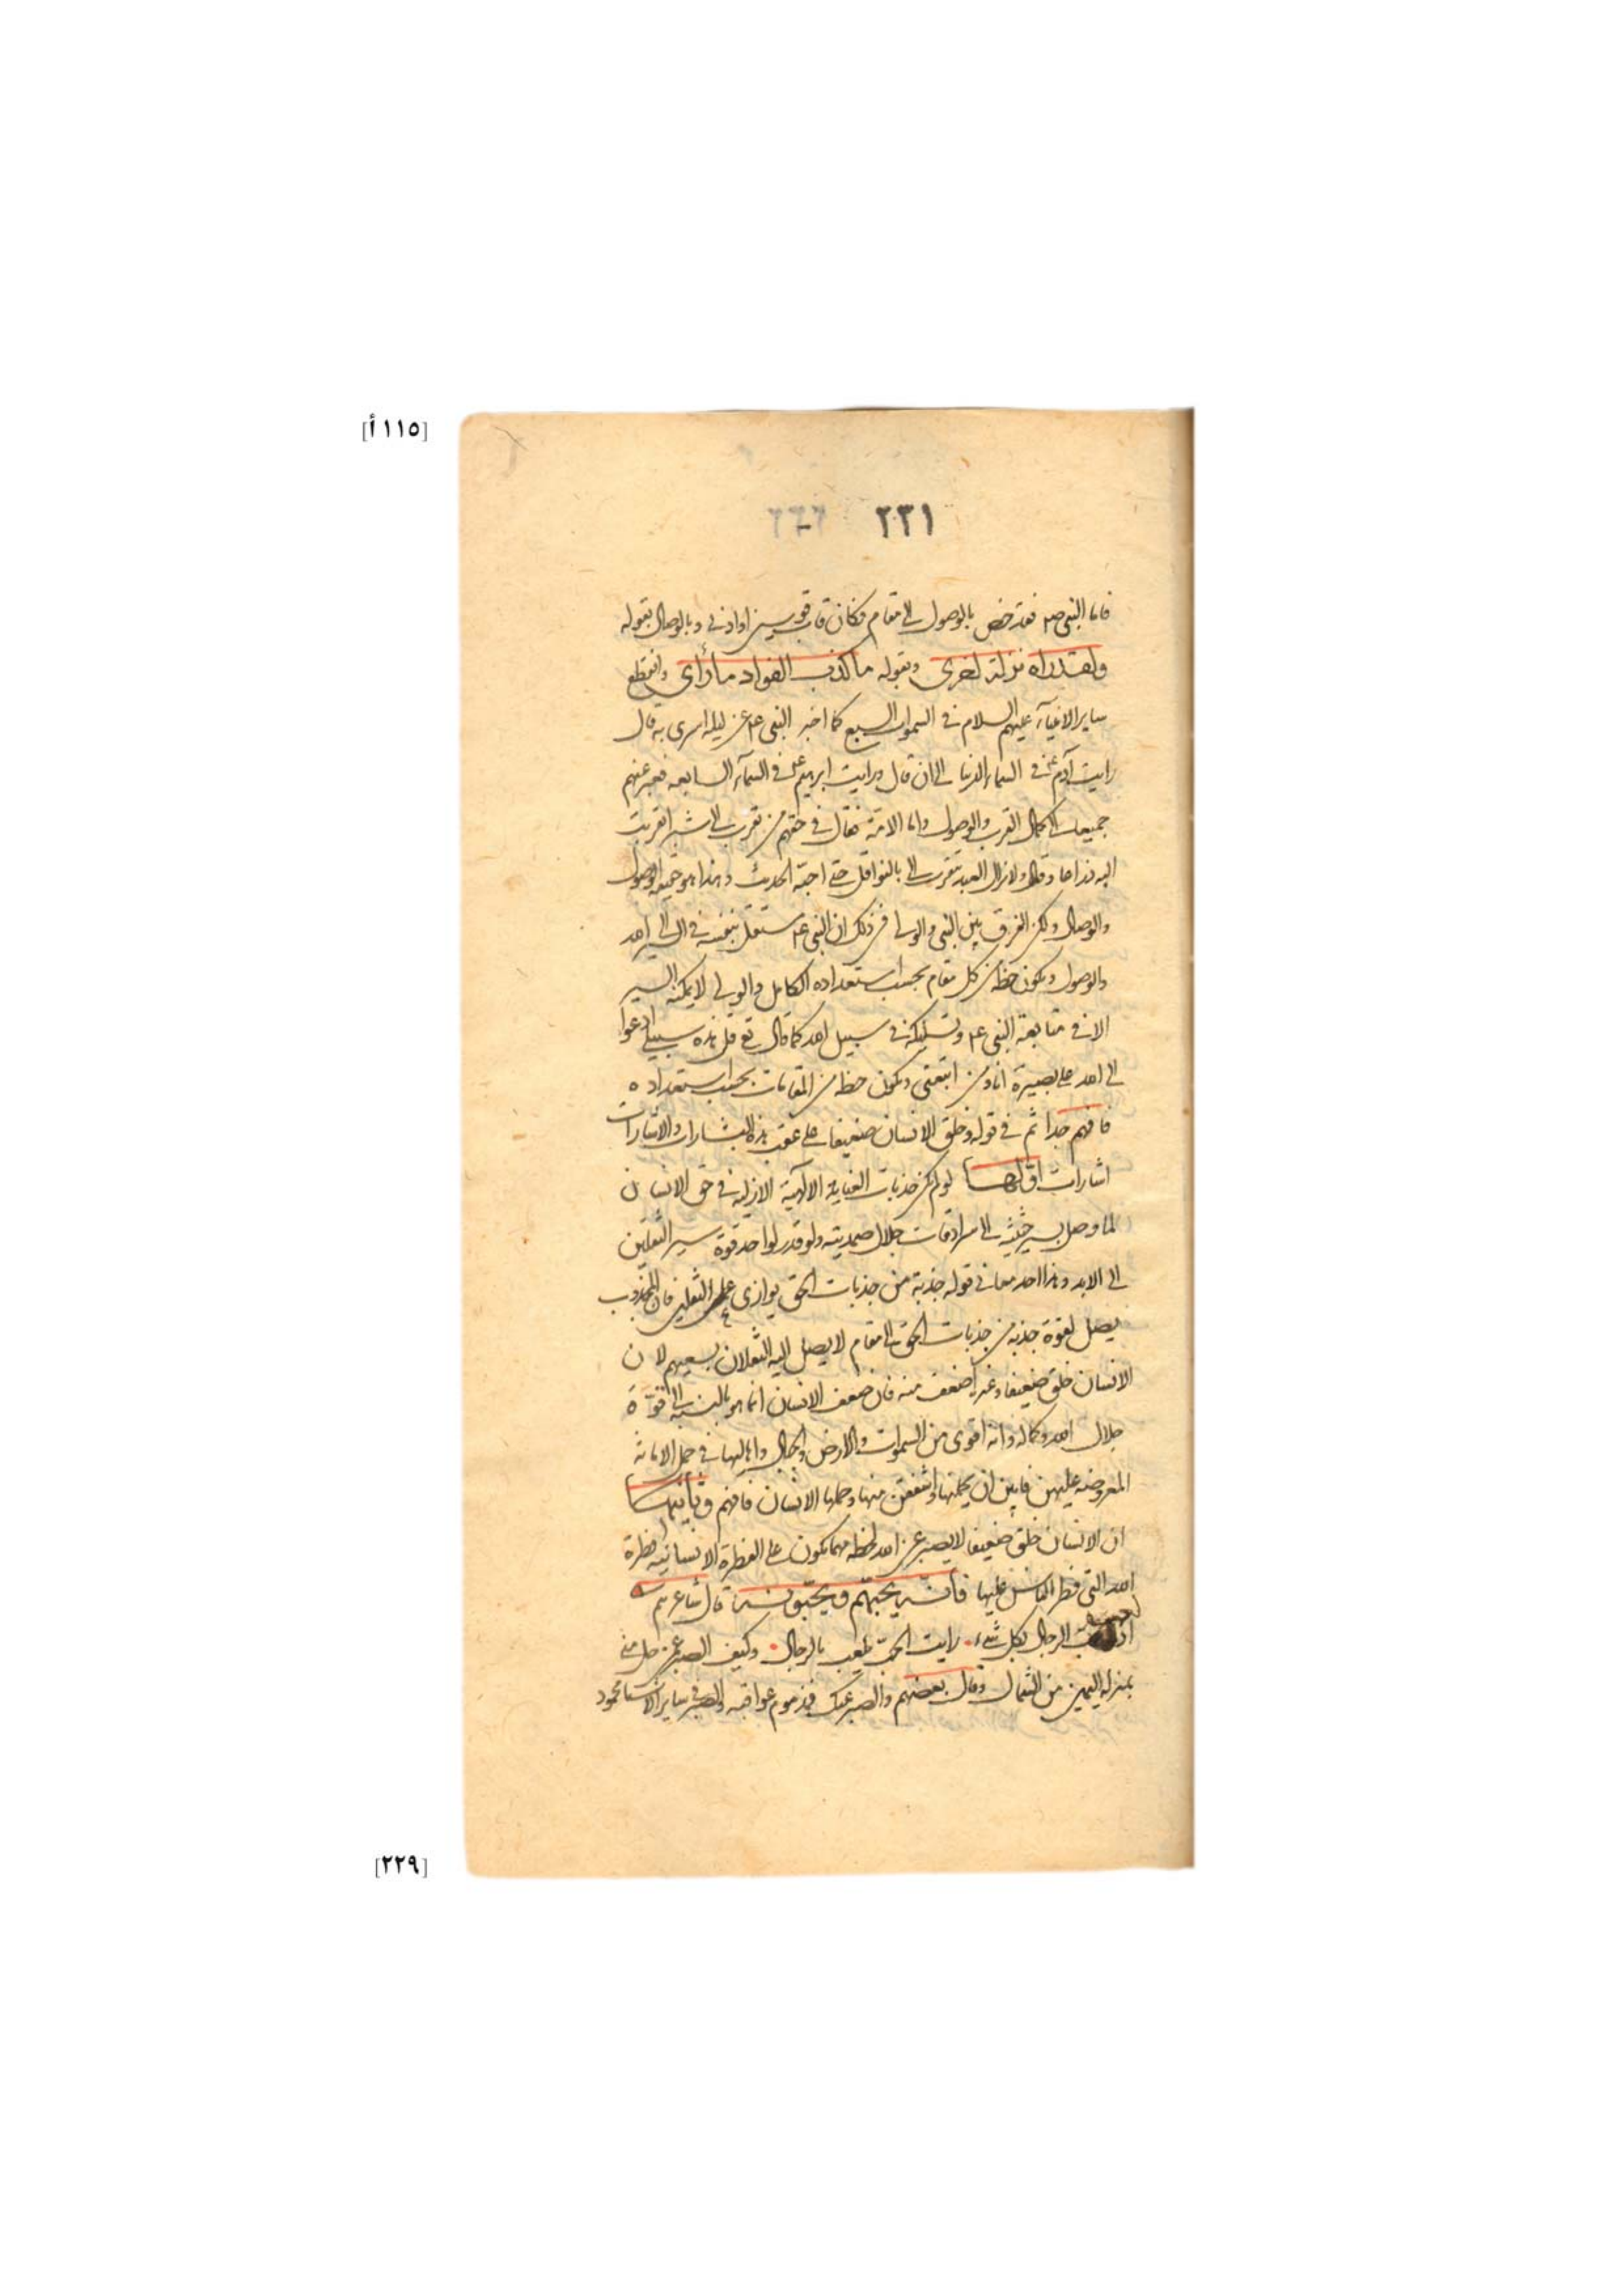 [١١٥أ]
٢٣١ ٢٦٦
فاما النبى صم فقد خص بالوصول الى مقام فكان قاب قوسين او ادنى وبالوصال بقوله
ولقد راه نزلة اخرى وبقوله ما كذب الفواد ما رأى وانقطع
ساير الانبيآء عليهم السلام فى السموات السبع كما اخبر النبى عم عن ليلة اسرى به قال
رايت آدم عم فى السماء الدنيا الى ان قال ورايت ابرهيم عم فى السمآء السابعه فعبر عنهم
جميعا الى كمال القرب والوصول واما الامة فقال فى حقهم من تقرب الى شبرا تقربت
اليه ذراعا وقال ولا يزال العبد يتقرب الى بالنوافل حتى احبه الحديث وهذا هو حقيقه الوصول
والوصال ولكن الفرق بين النبى والولى فى ذلك ان النبى عم مستقل بنفسه فى السير الى الله
والوصول ويكون حظه من كل مقام بحسب استعداده الكامل والولى لا يمكنه السير
الا فى متابعة النبى عم وتسليكه فى سبيل الله كما قال تع قل هذه سبيلى ادعوا
الى الله على بصيرة انا ومن اتبعنى ويكون حظه من المقامات بحسب استعداده
فافهم جدا ثم فى قوله وخلق الانسان ضعيفا على عقب هذه البشارات والاشارات
اشارات اولها لو لم يكن جذبات العناية الالهية الازليه فى حق الانسان
لما وصل بسير حثيثه الى سرادقات جلال صمديته ولو قدر لواحد قوة سير الثقلين
الى الابد وهذا احد معانى قوله جذبة من جذبات الحق يوازى عمل الثقلين فان المجذوب
يصل لقوة جذبه من جذبات الحق الى مقام لا يصل اليه الثقلان بسعيهم لان
الانسان خلق ضعيفا وغيره اضعف منه فان ضعف الانسان انما هو بالنسبه الى قوّة
جلال الله وكماله وانه اقوى من السموات والارض والجبال واهاليها فى حمل الامانه
المعروضه عليهن فابين ان يحملنها واشفقن منها وحملها الانسان فافهم وثانيها
ان الانسان خلق ضعيفا لا يصبر عن الله لحظه مهما يكون على الفطرة الانسانيه فطرة
الله التى فطر الناس عليها فانه يحبهم ويحبّونه قال شاعرهم
اذا لعب الرجال بكل شىء رايت الحب يلعب بالرجال وكيف الصبر عمن حل منى
بمنزلة اليمين من الشمال وقال بعضهم والصبر عنك فمذموم عواقبه والصبر فى ساير الاشيا محمود
[٢٢٩]